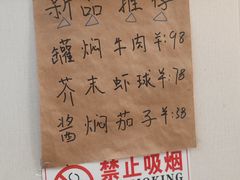 新品推荐
罐焖牛肉羊:98
芥末虾球羊:78
酱焖茄子羊:38
禁止吸烟
NO SMOKING